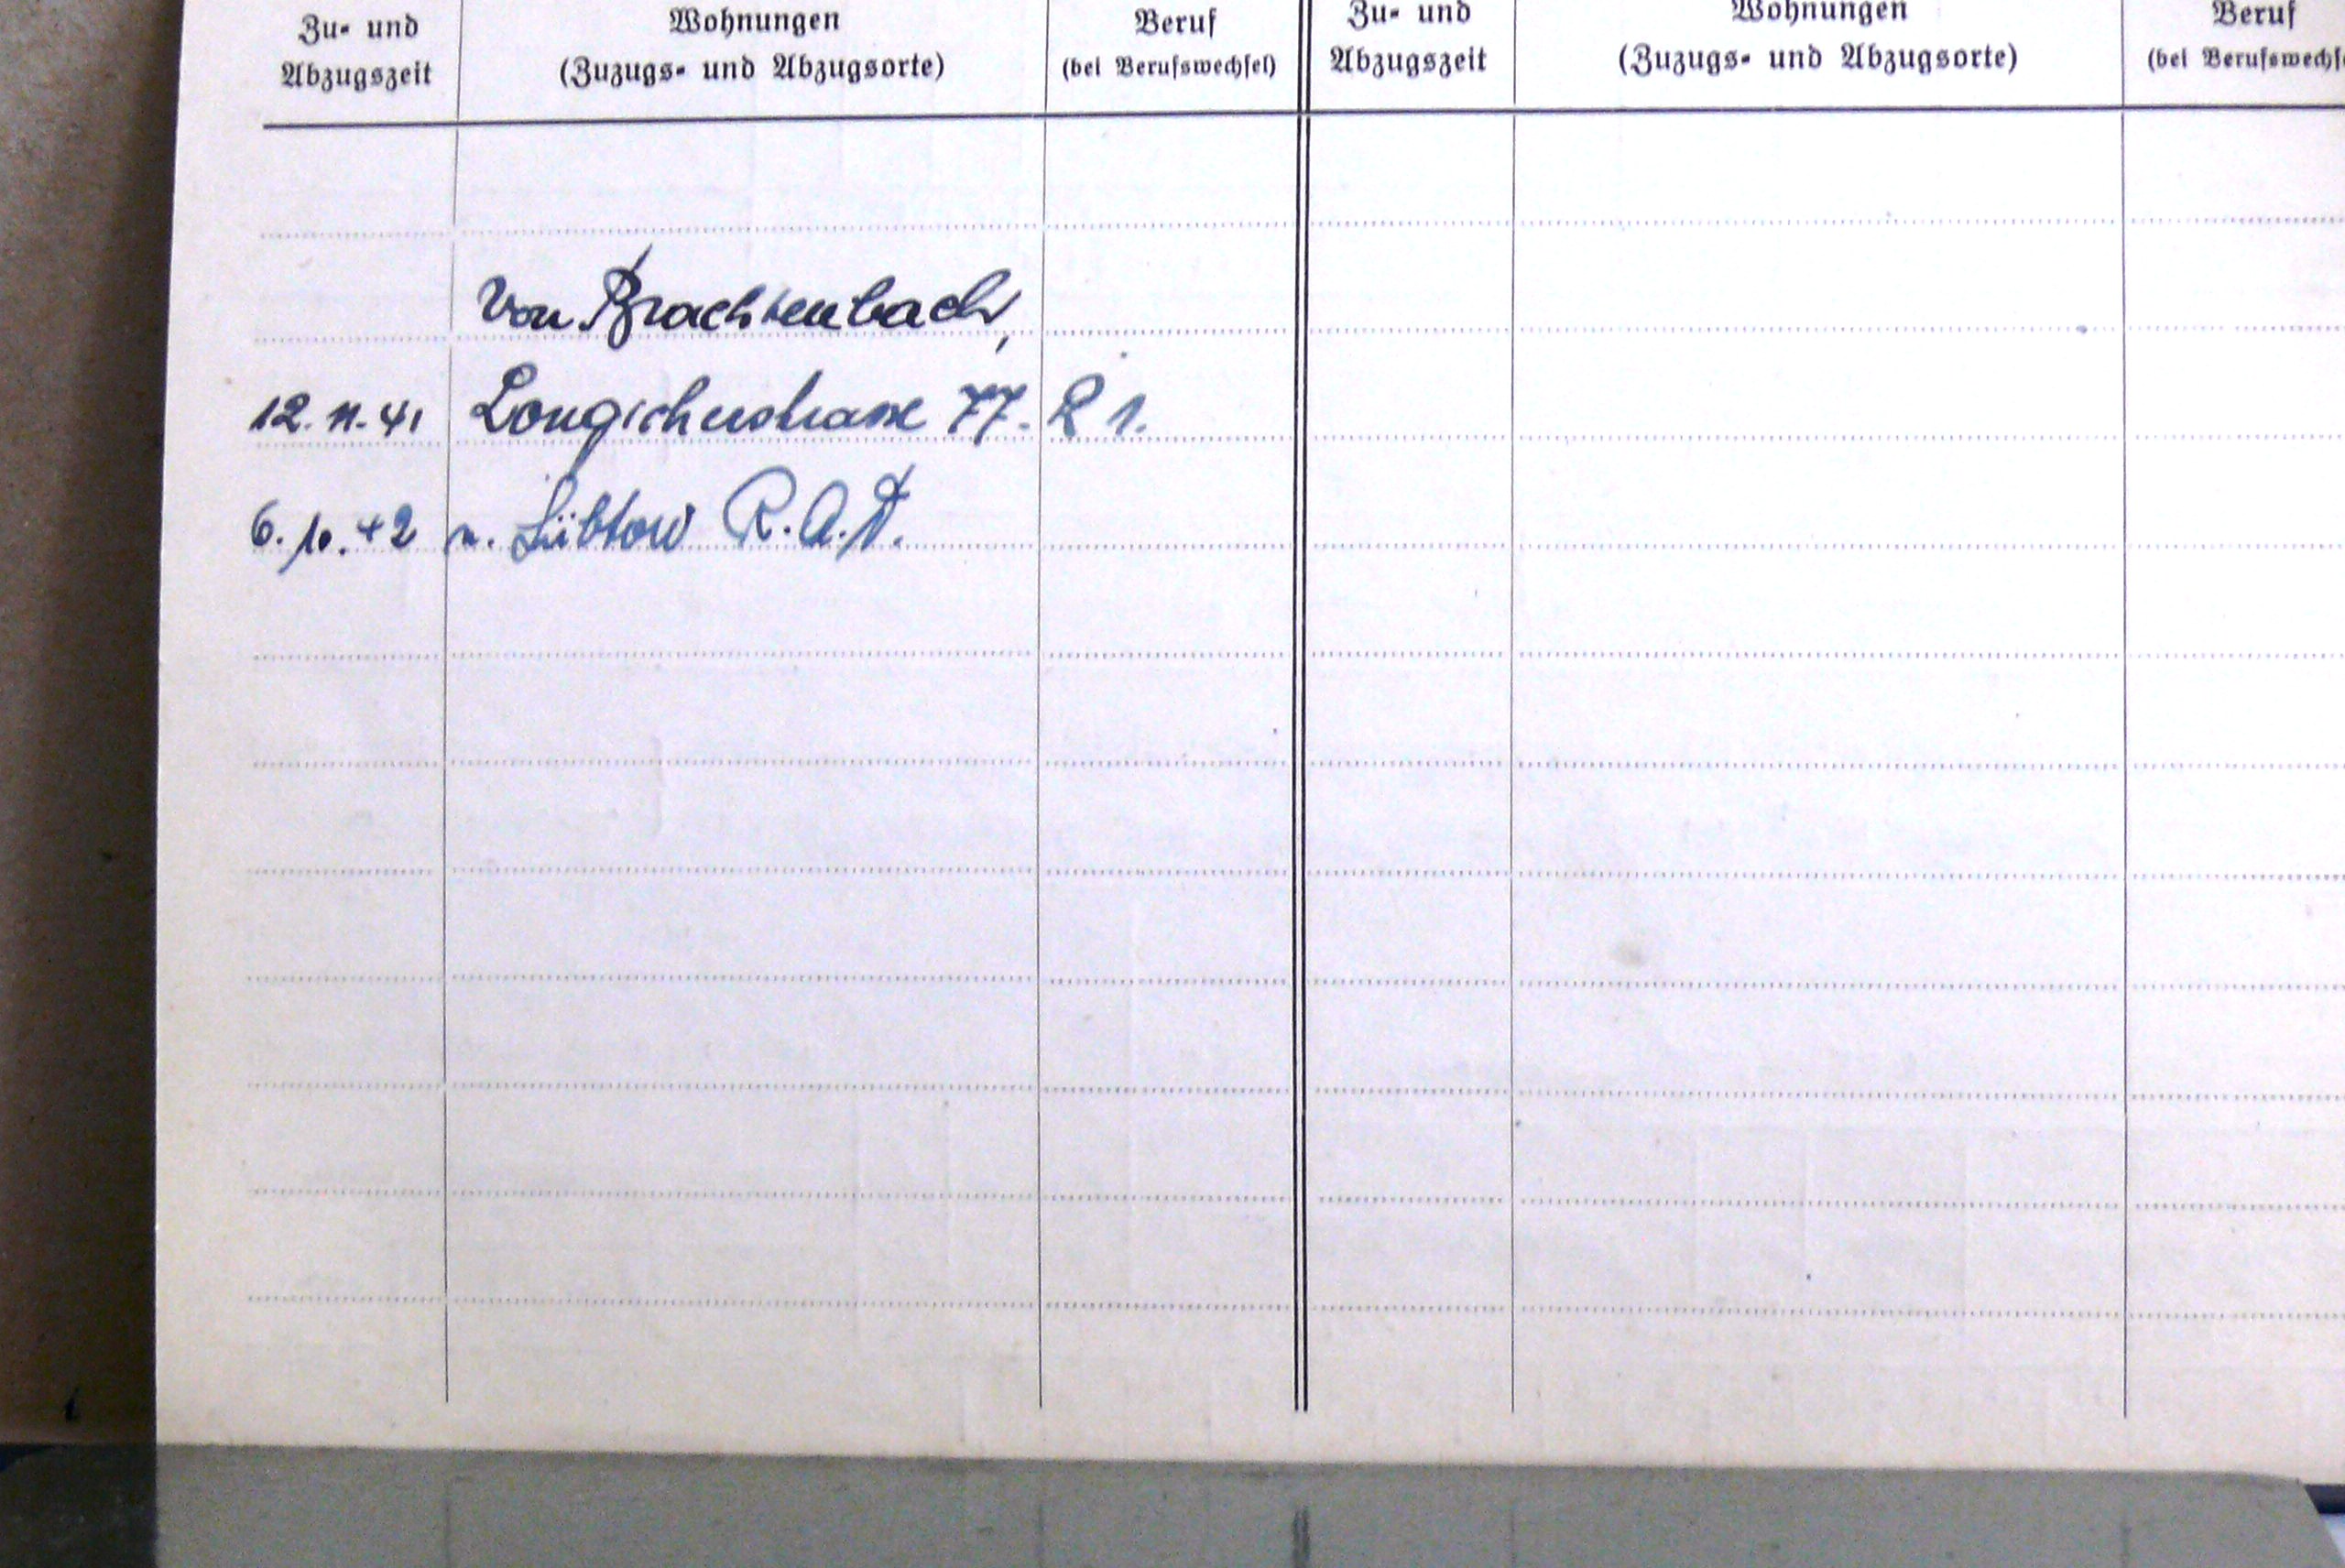 Zu- und Wohnungen Beruf Zu- und Wohnungen Beruf
Abzugszeit (Zuzugs- und Abzugsorte) (bei Berufswechsel) Abzugszeit (Zuzugs- und Abzugsorte) (bei Berufswechse
Von Brachtenbach,
12.11.41 Longicherstrasse 77. R 1.
6.10.42 n. Lübtow R.A.D.